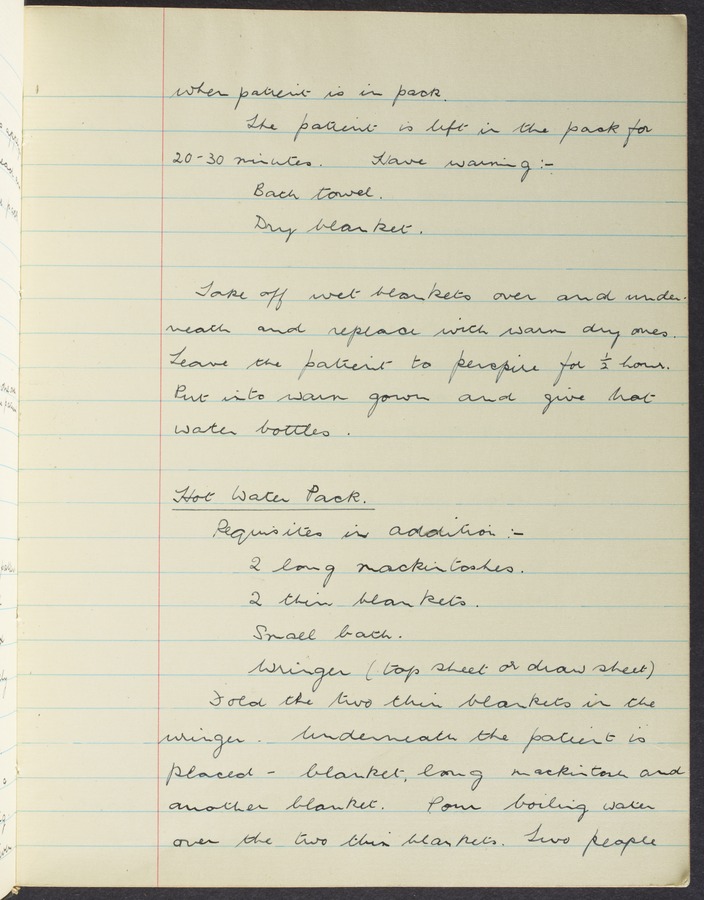 when patient is in pack.
The patient is left in the pack for
20-30 minutes. Have warming :-
Bath towel.
Dry blanket.
Take off wet blankets over and under-
neath and replace with warm dry ones.
Leave the patient to perspire for ½ hour.
Put into warm gown and give hot
water bottles.
Hot Water Pack.
Requisites in addition :-
2 long mackintoshes.
2 thin blankets.
Small bath.
Wringer (top sheet or draw sheet)
Fold the two thin blankets in the
wringer. Underneath the patient is
placed - blanket, long mackintosh and
another blanket. Pour boiling water
over the two thin blankets. Two people